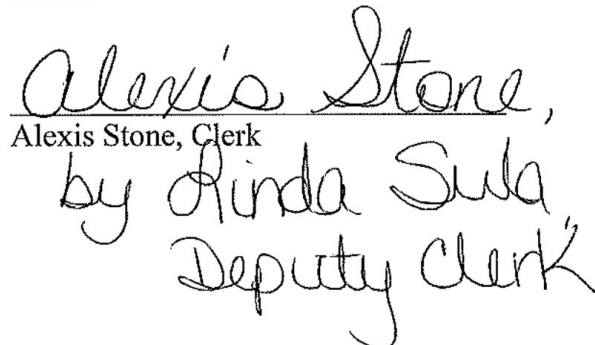 Alexis Stone,
Alexis Stone, Clerk
by Linda Sula
Deputy Clerk